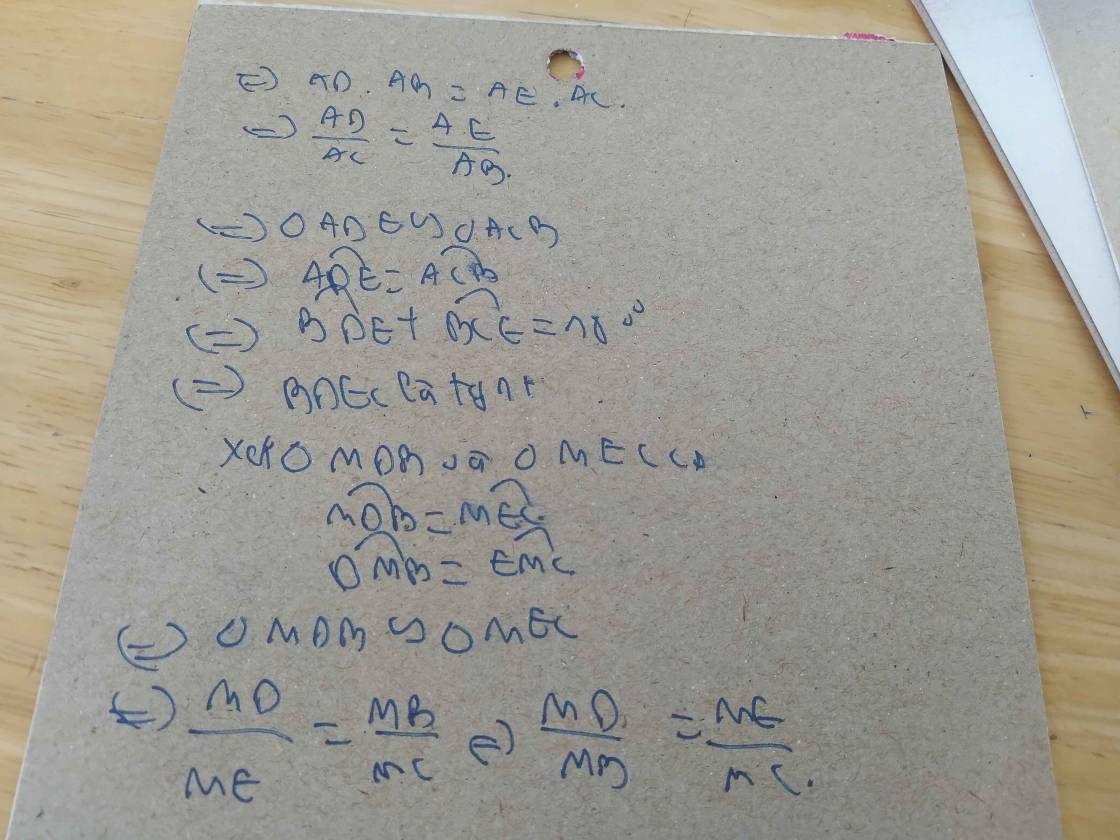 =) AD . AB = AE . AC.
=) AD/AC = AE/AB.
(=) △ADE ∽ △ACB
(=) ADE = ACB
(=) BDE + BCE = 180°
(=) BDEC là tg nt
Xét △ MDB và △ MEC có
MDB = MEC
DMB = EMC
(=) △ MDB ∽ △ MEC
(=) MD/ME = MB/MC =) MD/MB = ME/MC.